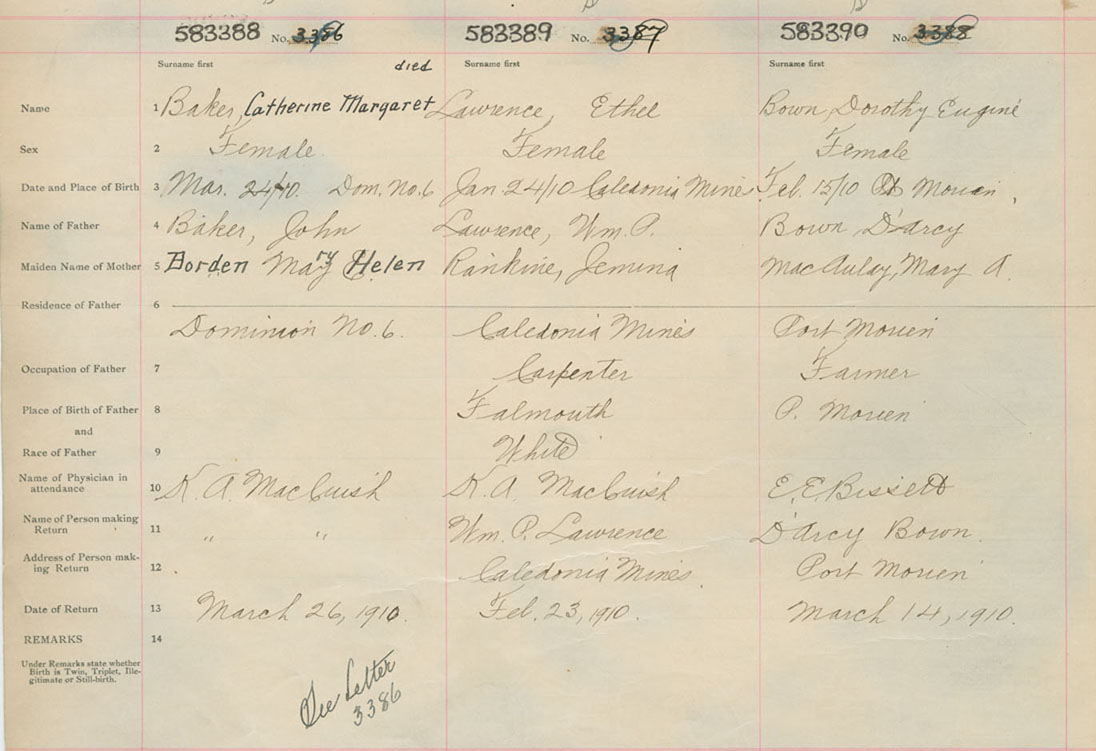 583388 No. 3386 583389 No. 3387 583390 No. 3388
Surname first died Surname first Surname first
Name 1 Baker, Catherine Margaret Lawrence, Ethel Bown, Dorothy Eugine
Sex 2 Female Female Female
Date and Place of Birth 3 Mar. 24/10. Dom. No. 6 Jan 24/10 Caledonia Mines Feb. 15/10 Pt Morien,
Name of Father 4 Baker, John Lawrence, Wm. P. Bown D'arcy
Maiden Name of Mother 5 Borden Mary Helen Rankine, Jemina MacAulay, Mary A.
Residence of Father 6
Dominion No. 6. Caledonia Mines Port Morien
Occupation of Father 7 Carpenter Farmer
Place of Birth of Father 8 Falmouth P. Morien
and
Race of Father 9 White
Name of Physician in
attendance 10 K. A. MacCuish K. A. MacCuish E. E. Bissett
Name of Person making
Return 11 " " Wm. P. Lawrence D'arcy Bown.
Address of Person mak-
ing Return 12 Caledonia Mines. Port Morien
Date of Return 13 March 26, 1910. Feb. 23, 1910. March 14, 1910.
REMARKS 14
Under Remarks state whether
Birth is Twin, Triplet, Ille-
gitimate or Still-birth.
See Letter
3386